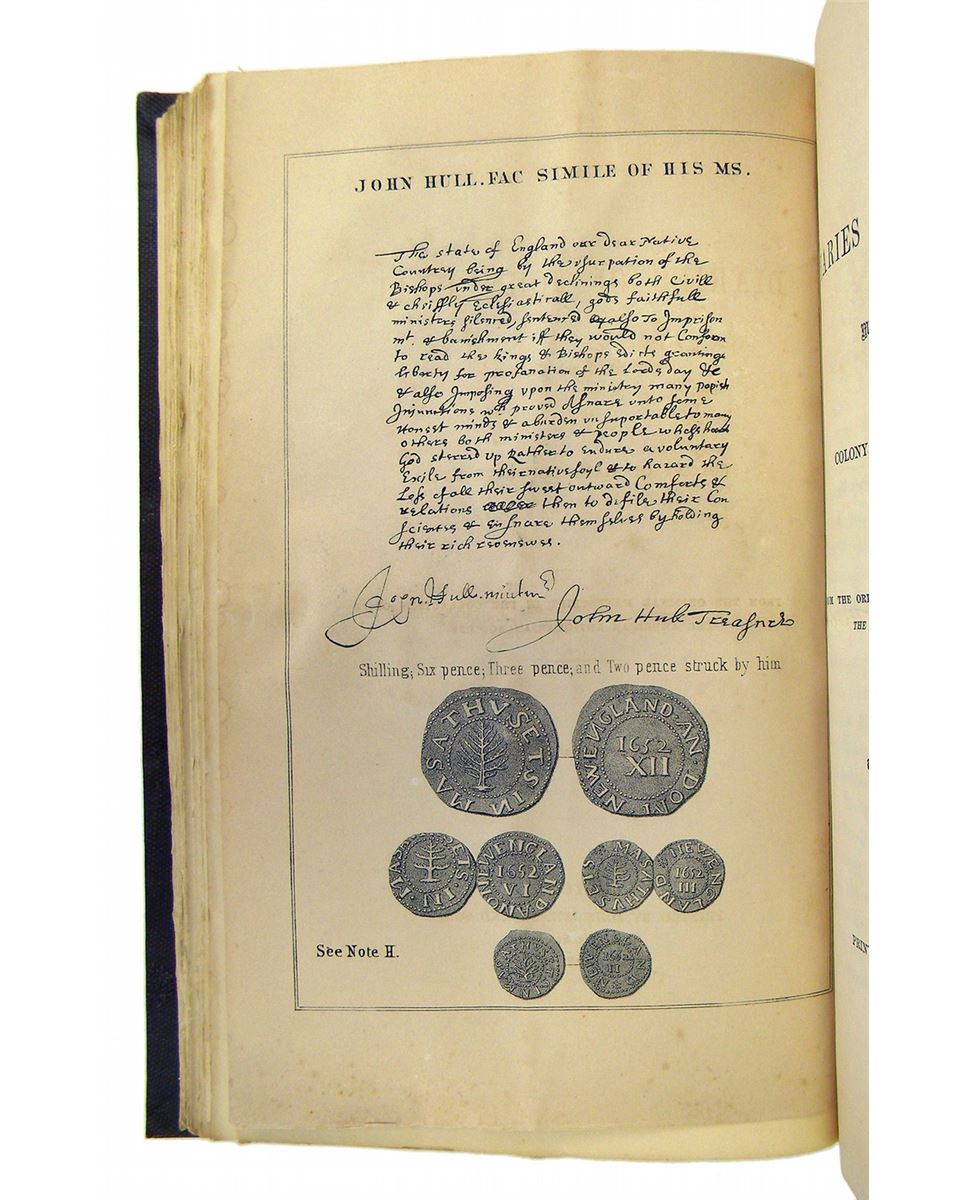 JOHN HULL. FAC SIMILE OF HIS MS.
The state of England our dear Native
Countrey being by the vsurpation of the
Bishops under great declinings both Civill
& chiefly Ecclesiasticall, gods faithfull
ministers silenced, sentenced & also To Imprison
mt. & banishment iff they would not Conform
to read the kings & Bishops edicts granting
liberty for profanation of the Lords day &c
& also Imposing upon the ministry many popish
Injunctions wch proved A snare unto some
Honest minds & a burden unsuportable to many
others both ministers & people
God sterred up Rather to Endure a voluntary
Exile from their native soyl & to hazard the
Loss of all their sweet outward Comforts &
relations them to defile their Con
sciences & ensnare themselves by holding
their rich revenewes.
John Hull mintmr
John Hull Treasurer
Shilling; Six pence; Three pence; and Two pence struck by him
MASATHVSETS IN
NEWENGLAND·AN·DOM·
1652
XII
NEWENGLAND·ANO
1652
VI
MASATHVSETS
NEWENGLAND·
1652
III
MASATHVSETS IN
1662
II
See Note H.
ARIES
COLONY
THE
PRIN